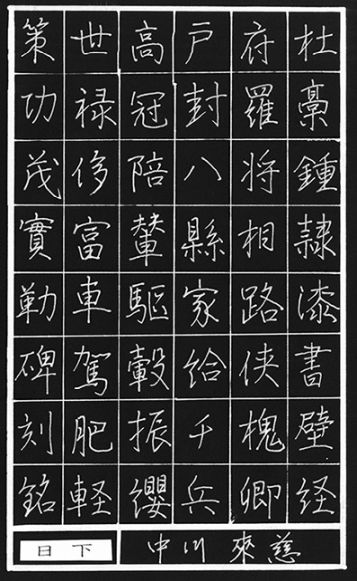 杜稾鍾隷漆書壁経
府羅将相路侠槐卿
戸封八縣家給千兵
高冠陪輦驅轂振纓
世禄侈富車駕肥軽
策功茂實勒碑刻銘
中川來慈
日下